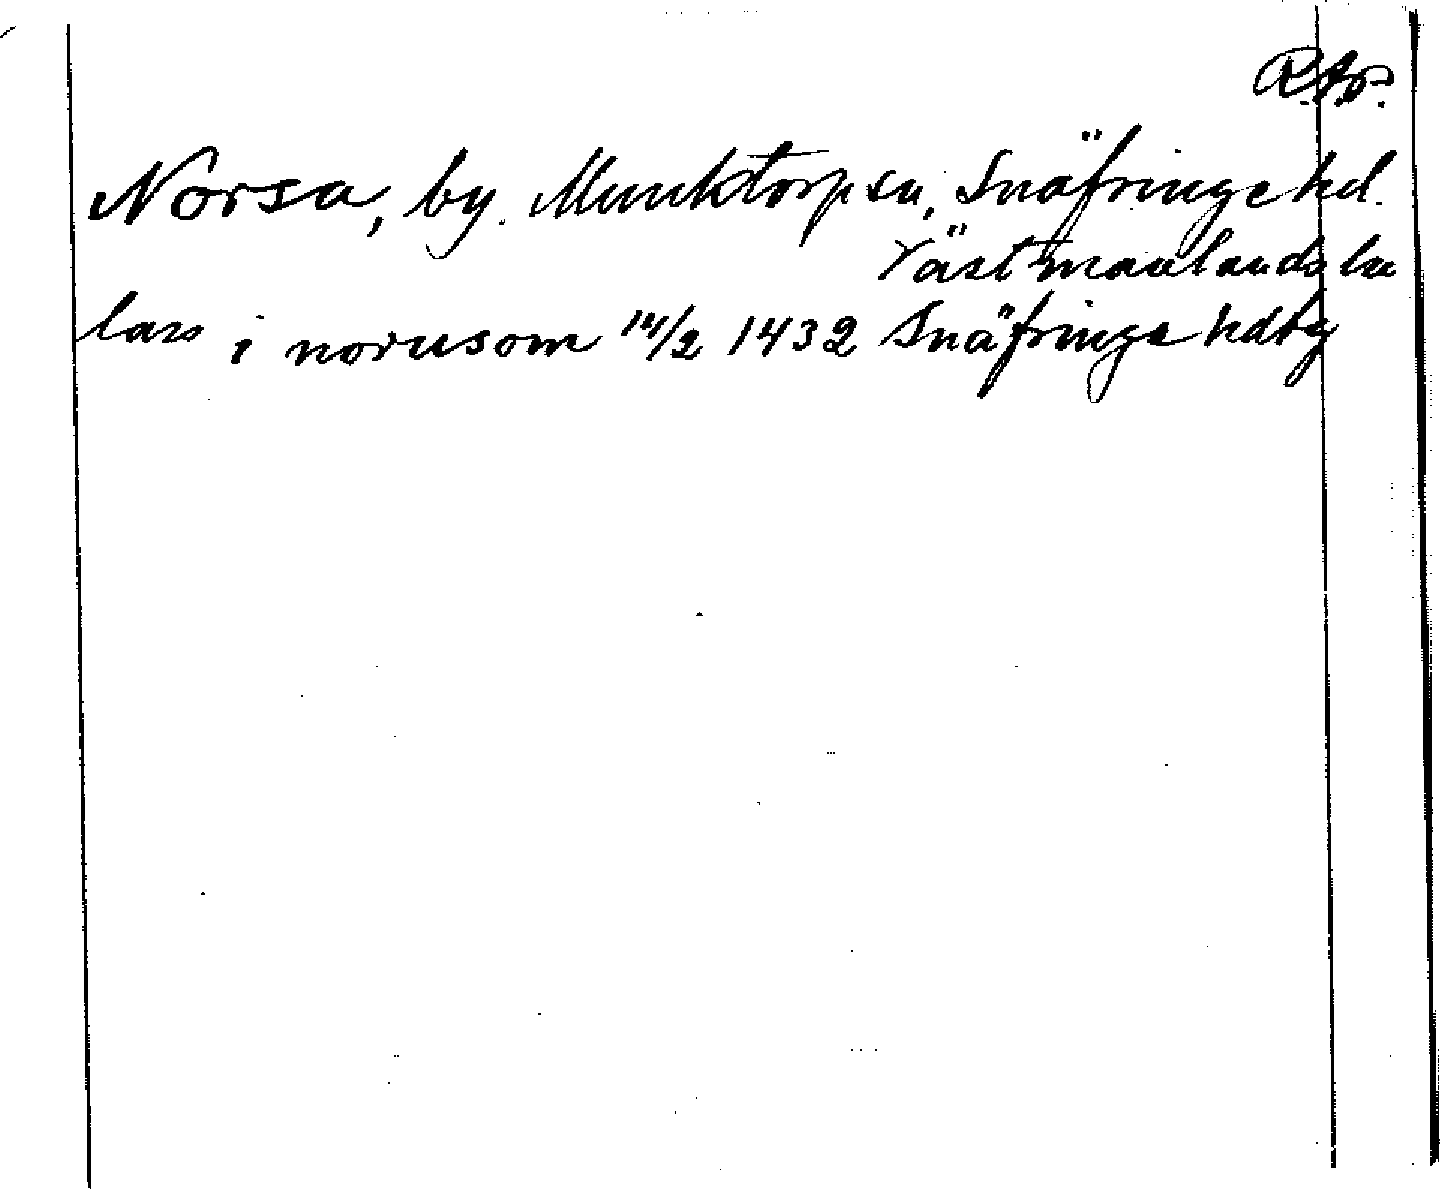 R.Ap.
Norsa, by. Munktorp sn, Snäfringe hd.
Västmanlands län
lars i norusom 14/2 1432 Snäfringe hdbg